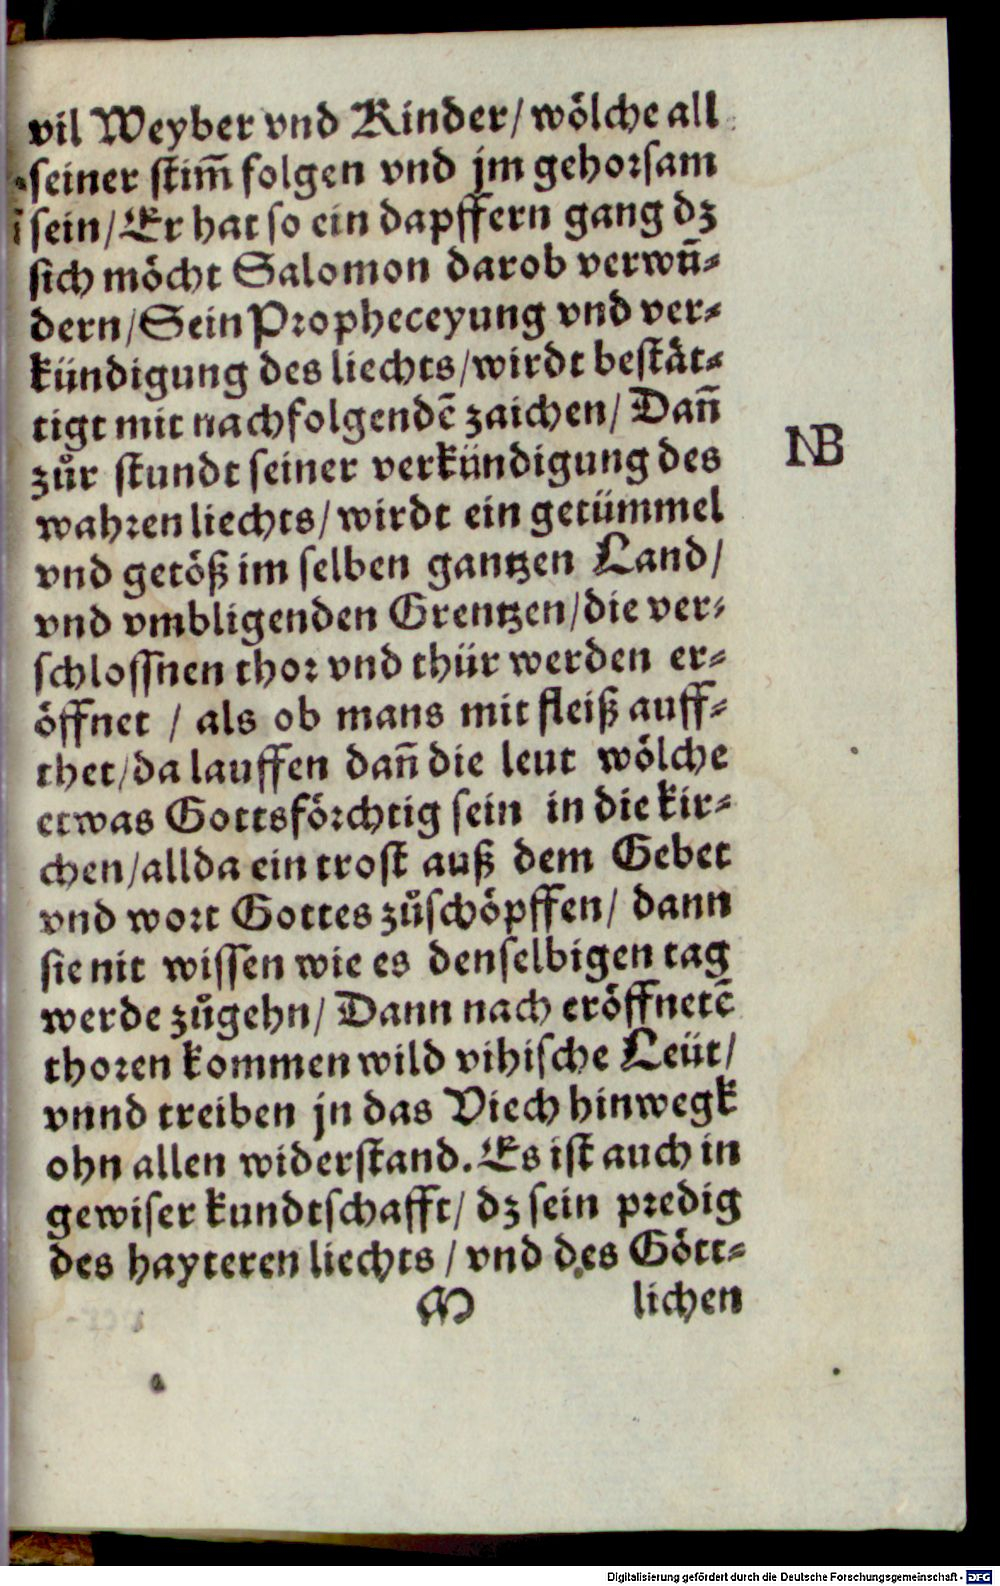 vil Weyber vnd Kinder/ wölche all
seiner stim̃ folgen vnd jm gehorsam
sein/ Er hat so ein dapffern gang dz
sich möcht Salomon darob verwũ-
dern/ Sein Propheceyung vnd ver-
kündigung des liechts/ wirdt bestät-
tigt mit nachfolgendẽ zaichen/ Dañ
zůr stundt seiner verkündigung des
NB
wahren liechts/ wirdt ein getümmel
vnd getöß im selben gantzen Land/
vnd vmbligenden Grentzen/ die ver-
schlossnen thor vnd thür werden er-
öffnet / als ob mans mit fleiß auff-
thet/ da lauffen dañ die leut wölche
etwas Gottsförchtig sein in die kir-
chen/ allda ein trost auß dem Gebet
vnd wort Gottes zůschöpffen/ dann
sie nit wissen wie es denselbigen tag
werde zůgehn/ Dann nach eröffnetẽ
thoren kommen wild vihische Leüt/
vnnd treiben jn das Viech hinwegk
ohn allen widerstand. Es ist auch in
gewiser kundtschafft/ dz sein predig
des hayteren liechts / vnd des Gött-
M lichen
Digitalisierung gefördert durch die Deutsche Forschungsgemeinschaft - DFG